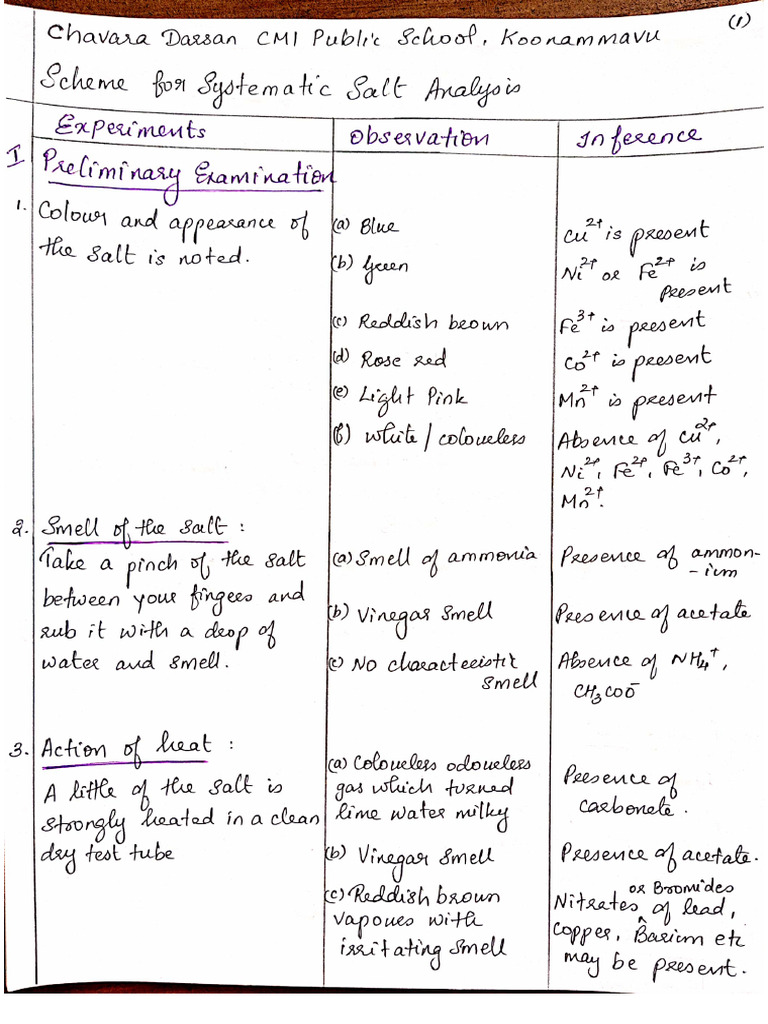 (1)
Chavara Darsan CMI Public School, Koonammavu
Scheme for Systematic Salt Analysis
Experiments Observation Inference
I Preliminary Examination
1. Colour and appearance of
the salt is noted.
(a) Blue
Cu²⁺ is present
(b) Green
Ni²⁺ or Fe²⁺ is
present
(c) Reddish brown
Fe³⁺ is present
(d) Rose red
Co²⁺ is present
(e) Light Pink
Mn²⁺ is present
(f) White / colourless
Absence of Cu²⁺,
Ni²⁺, Fe²⁺, Fe³⁺, Co²⁺,
Mn²⁺.
2. Smell of the salt :
Take a pinch of the salt
between your fingers and
rub it with a drop of
water and smell.
(a) Smell of ammonia
Presence of ammon-
-ium
(b) Vinegar smell
Presence of acetate
(c) No characteristic
smell
Absence of NH₄⁺,
CH₃COO⁻
3. Action of heat :
A little of the salt is
strongly heated in a clean
dry test tube
(a) Colourless odourless
gas which turned
lime water milky
Presence of
carbonate.
(b) Vinegar smell
Presence of acetate.
(c) Reddish brown
vapours with
irritating smell
or Bromides
Nitrates ^ of lead,
Copper, Barium etc
may be present.